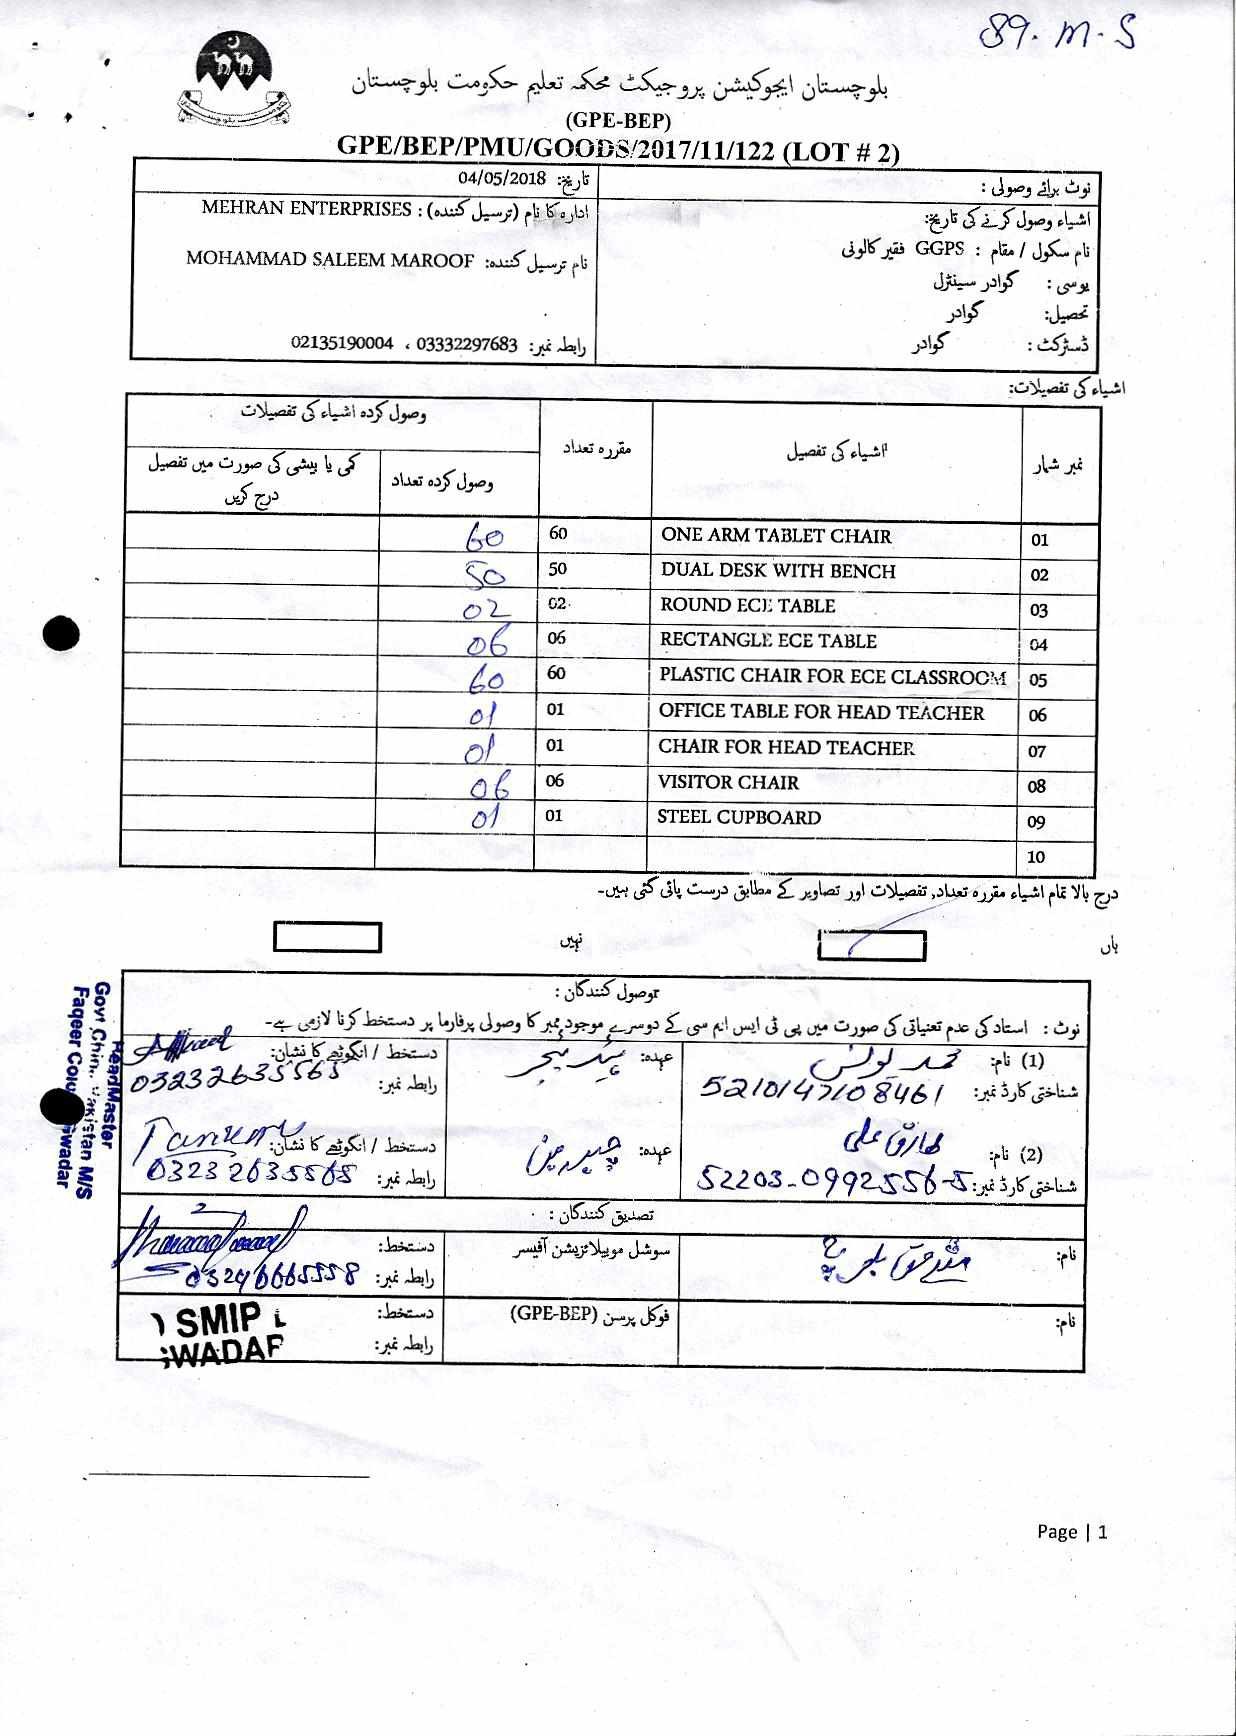 89. M. S
بلوچستان ایجوکیشن پروجیکٹ محکمہ تعلیم حکومت بلوچستان
(GPE-BEP)
GPE/BEP/PMU/GOODS/2017/11/122 (LOT # 2)
نوٹ برائے وصولی :
اشیاء وصول کرنے کی تاریخ:
نام سکول / مقام : GGPS فقیر کالونی
یوسی : گوادر سینٹرل
تحصیل: گوادر
ڈسٹرکٹ : گوادر
تاریخ: 04/05/2018
ادارہ کا نام (ترسیل کنندہ) : MEHRAN ENTERPRISES
نام ترسیل کنندہ: MOHAMMAD SALEEM MAROOF
رابطہ نمبر: 03332297683 ، 02135190004
اشیاء کی تفصیلات:
نمبر شمار اشیاء کی تفصیل مقررہ تعداد وصول کردہ اشیاء کی تفصیلات
وصول کردہ تعداد کمی یا بیشی کی صورت میں تفصیل درج کریں
01 ONE ARM TABLET CHAIR 60 60
02 DUAL DESK WITH BENCH 50 50
03 ROUND ECE TABLE 02 02
04 RECTANGLE ECE TABLE 06 06
05 PLASTIC CHAIR FOR ECE CLASSROOM 60 60
06 OFFICE TABLE FOR HEAD TEACHER 01 01
07 CHAIR FOR HEAD TEACHER 01 01
08 VISITOR CHAIR 06 06
09 STEEL CUPBOARD 01 01
10
درج بالا تمام اشیاء مقررہ تعداد, تفصیلات اور تصاویر کے مطابق درست پائی گئی ہیں۔
ہاں نہیں
وصول کنندگان :
نوٹ : استاد کی عدم تعنیاتی کی صورت میں پی ٹی ایس ایم سی کے دوسرے موجود ممبر کا وصولی پرفارما پر دستخط کرنا لازمی ہے۔
(1) نام: محمد یونس عہدہ: دستخط / انگوٹھے کا نشان:
شناختی کارڈ نمبر: 5210147108461 رابطہ نمبر: 03232635565
(2) نام: طارق علی عہدہ: چیئرمین دستخط / انگوٹھے کا نشان:
شناختی کارڈ نمبر: 52203-0992556-5 رابطہ نمبر: 03232635565
تصدیق کنندگان :
نام: سوشل موبیلائزیشن آفیسر دستخط:
رابطہ نمبر: 03246665558
نام: فوکل پرسن (GPE-BEP) دستخط:
رابطہ نمبر:
SMIP
WADAR
HeadMaster
Pakistan M/S
Faqeer
Page | 1